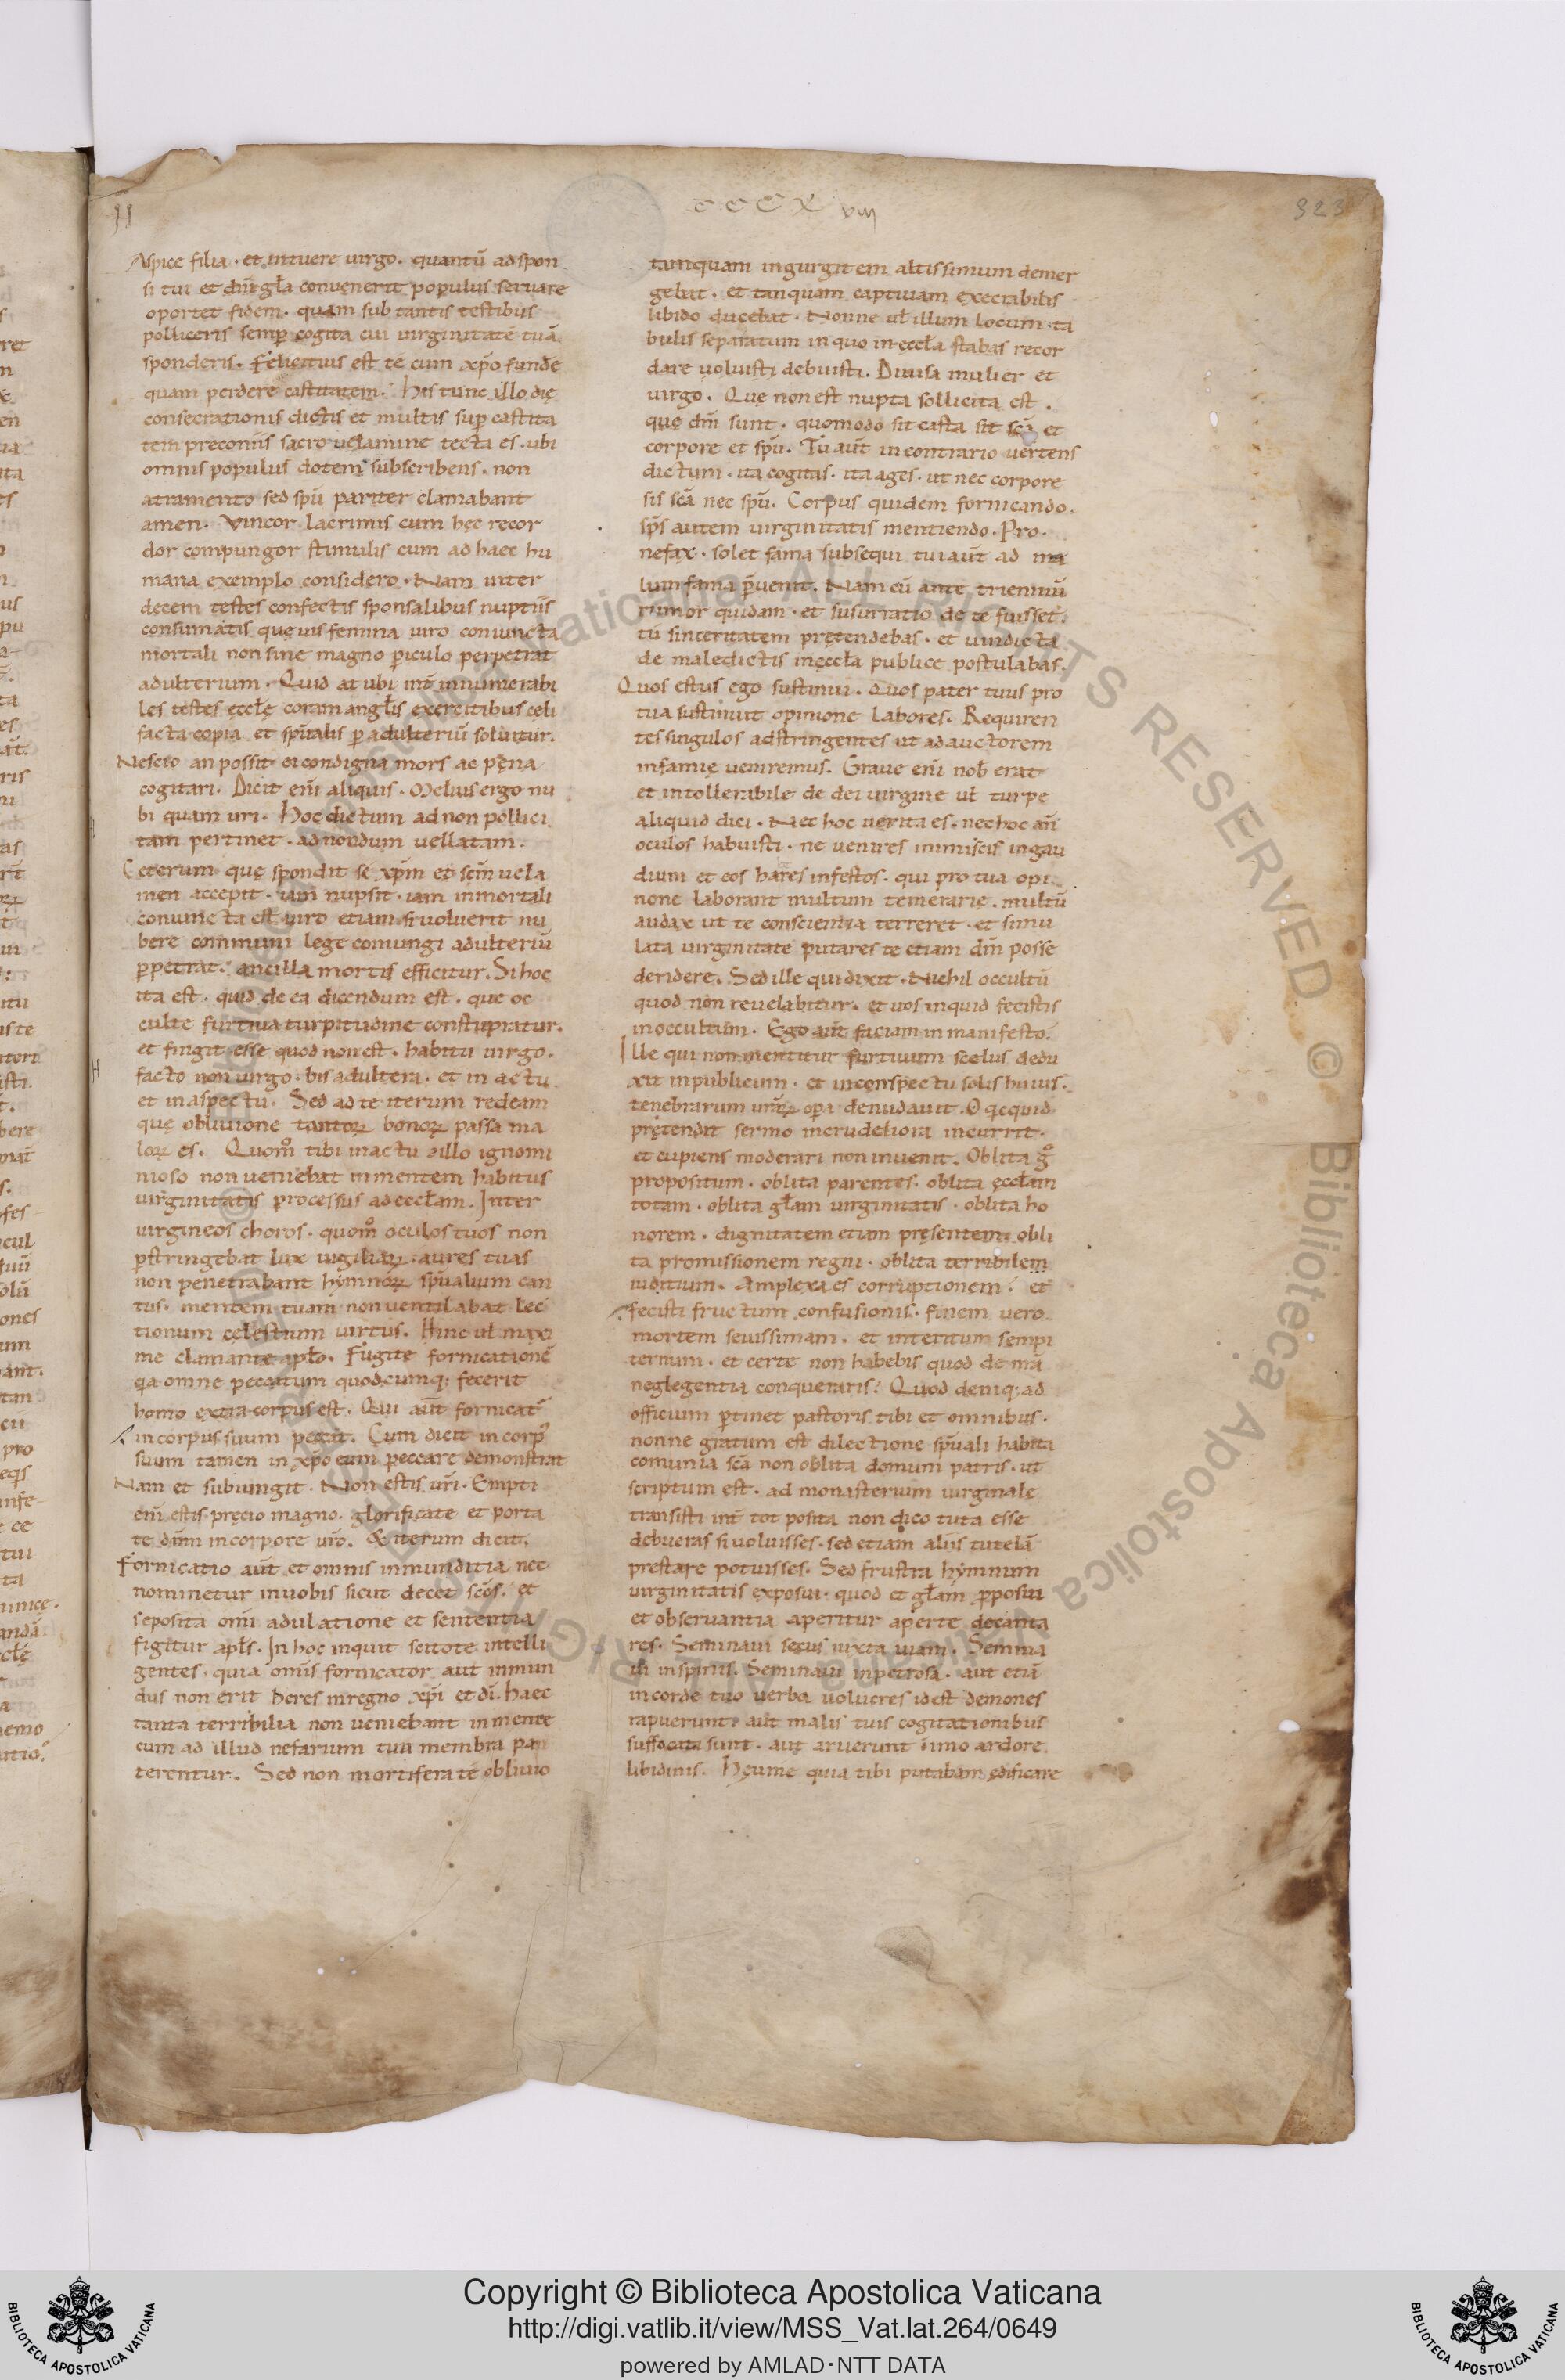 CCCX VIII
323
Aspice filia · et intuere uirgo. quantū ad spon
si tui et dn̄i gl̄a conuenerit populus seruare
oportet fidem. quam sub tantis testibus
polliceris semp̄ cogita cui uirginitatē tuā
sponderis. Felicitius est te cum xp̄o fundē
quam perdere castitatem. His tunc illo die
consecrationis dictis et multis sup̄ castita
tem preconiis sacro uelamine tecta es. ubi
omnis populus dotem subscribens. non
atramento sed spū pariter clamabant
amen. Vincor lacrimis cum hęc recor
dor compungor stimulis cum ad haec hu
mana exemplo considero. Nam inter
decem testes confectis sponsalibus nuptiis
consumatis quęuis femina uiro coniuncta
mortali non sine magno p̄iculo perpetrat
adulterium. Quid at ubi int̄ innumerabi
les testes ęccl̄ę coram angl̄is exercitibus celi
facta copia et sp̄ualis p adulteriū soluitur.
Nescio an possit ei condigna mors ac pęna
cogitari. Dicit eni aliquis. Melius ergo nu
bi quam uri. Hoc dictum ad non pollici
tam pertinet. ad nondum uellatam.
Ceterum quę spondit se xp̄m et sc̄m uela
men accepit. iam nupsit. iam inmortali
coniuncta est uiro etiam si uoluerit nu
bere communi lege coniungi adulteriū
p̄petrat. ancilla mortis efficitur. Si hoc
ita est. quid de ea dicendum est. que oc
culte furtiua turpitudine constupratur.
et fingit esse quod non est. habitu uirgo.
facto non uirgo. bis adultera. et in actu
et in aspectu. Sed ad te iterum redeam
quę obliuione tantoꝝ bonoꝝ passa ma
loꝝ es. Quom̊ tibi in actu illo ignomi
nioso non ueniebat in mentem habitus
uirginitatis processus ad eccl̄am. Inter
uirgineos choros. quom̊ oculos tuos non
p̄stringebat lux uigiliaꝝ. aures tuas
non penetrabant hymnoꝝ sp̄ualium can
tus. mentem tuam non uentilabat lec
tionum celestium uirtus. Hinc ul̄ maxi
me clamante apl̄o. Fugite fornicationē
qa omne peccatum quodcumq; fecerit
homo extra corpus est. Qui aut̄ fornicat̄
in corpus suum peccat. Cum dicit in corp̄
suum tamen in xp̄o eum peccare demonstrat
Nam et subiungit. Non estis ur̄i. Empti
eni estis pręcio magno. glorificate et porta
te dn̄m in corpore ur̄o. & iterum dicit.
Fornicatio aut̄ et omnis inmunditia nec
nominetur in uobis sicut decet sc̄os. et
seposita omi adulatione et sententia
figitur apl̄s. In hoc inquit scitote intelli
gentes. quia omis fornicator aut inmun
dus non erit heres in regno xp̄i et di. haec
tanta terribilia non ueniebant in mente
cum ad illud nefarium tua membra pan
terentur. Sed non mortifera te obliuio
tamquam in gurgitem altissimum demer
gebat. et tanquam captiuam execrabilis
libido ducebat. Nonne ul̄ illum locum ta
bulis separatum in quo in eccl̄a stabas recor
dare uoluisti debuisti. Diuisa mulier et
uirgo. Quę non est nupta sollicita est.
quę dn̄i sunt. quomodo sit casta sit sc̄a et
corpore et spū. Tu aut̄ in contrario uertens
dictum. ita cogitas. ita ages. ut nec corpore
sis sc̄a nec spū. Corpus quidem fornicando.
sp̄s autem uirginitatis mentiendo. Pro
nefax. solet fama subsequi tui aut̄ ad ma
lum fama p̄uenit. Nam cū ante trienniū
rumor quidam et susurratio de te fuisset
tu sinceritatem prętendebas. et uindicta
de maledictis in ęccl̄a publice postulabas.
Quos estus ego sustinui. Quos pater tuus pro
tua sustinuit opinione labores. Requiren
tes singulos adstringentes ut ad auctorem
infamię ueniremus. Graue eni nob̄ erat
et intollerabile de dei uirgine ul̄ turpe
aliquid dici. Nec hoc uerita es. nec hoc an̄
oculos habuisti. ne uenires inimiscis in gau
dium et eos hares infestos. qui pro tua opi
nione laborant multum temerarię. multū
audax ut te conscientia terreret. et simu
lata uirginitate putares te etiam dm̄ posse
deridere. Sed ille qui dixit. Nichil occultū
quod non reuelabitur. et uos inquid fecistis
in occultum. Ego aut̄ faciam in manifesto.
Ille qui non mentitur furtiuum scelus dedu
xit in publicum. et in conspectu solis huius.
tenebrarum ur̄aꝝ opa denudauit. O qicquid
prętendit sermo in crudeliora incurrit.
et cupiens moderari non inuenit. Oblita g̊
propositum. oblita parentes. oblita ęccl̄am
totam. oblita gl̄am uirginitatis. oblita ho
norem. dignitatem etiam pręsentem obli
ta promissionem regni. oblita terribilem
iuditium. Amplexa es corruptionem. et
fecisti fructum confusionis. finem uero
mortem seuissimam. et interitum sempi
ternum. et certe non habebis quod de mā
neglegentia conqueraris. Quod deniq; ad
officium p̄tinet pastoris tibi et omnibus.
nonne gratum est dilectione sp̄uali habita
comunia sc̄a non oblita domum patris. ut
scriptum est. ad monasterium uirginale
transisti int̄ tot posita non dico tuta esse
debueras si uoluisses. sed etiam aliis tutelā
prestare potuisses. Sed frustra hymnum
uirginitatis exposui. quod et gl̄am p̄posui
et obseruantia aperitur aperte decanta
res. Seminaui secus iuxta uiam. Semina
ui in spinis. Seminaui in petrosa. aut etiā
in corde tuo uerba uolucres id est demones
rapuerunt. aut malis tuis cogitationibus
suffocata sunt. aut aruerunt imo ardore
libidinis. Heume quia tibi putabam ędificare
Copyright © Biblioteca Apostolica Vaticana
http://digi.vatlib.it/view/MSS_Vat.lat.264/0649
powered by AMLAD·NTT DATA
BIBLIOTECA APOSTOLICA VATICANA
BIBLIOTECA APOSTOLICA VATICANA